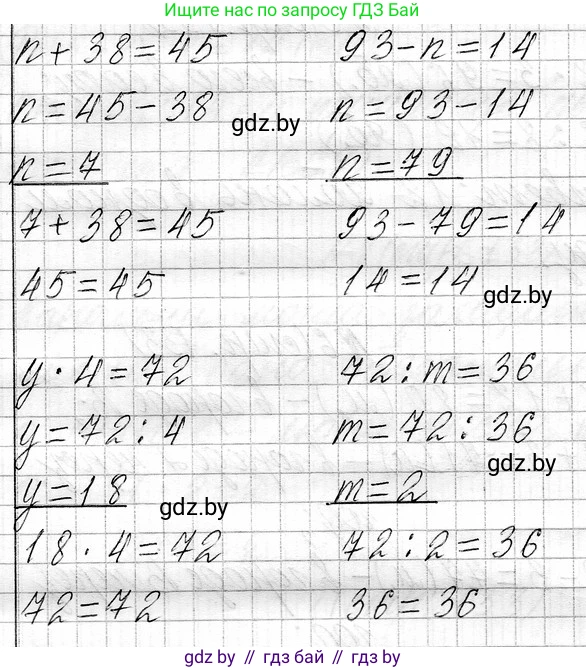 Ищите нас по запросу ГДЗ Бай
n + 38 = 45
n = 45 - 38
gdz.by
n = 7
7 + 38 = 45
45 = 45
93 - n = 14
n = 93 - 14
n = 79
93 - 79 = 14
14 = 14
gdz.by
y · 4 = 72
y = 72 : 4
y = 18
gdz.by
18 · 4 = 72
72 = 72
72 : m = 36
m = 72 : 36
gdz.by
m = 2
72 : 2 = 36
36 = 36
gdz by // gdz бай // гдз by